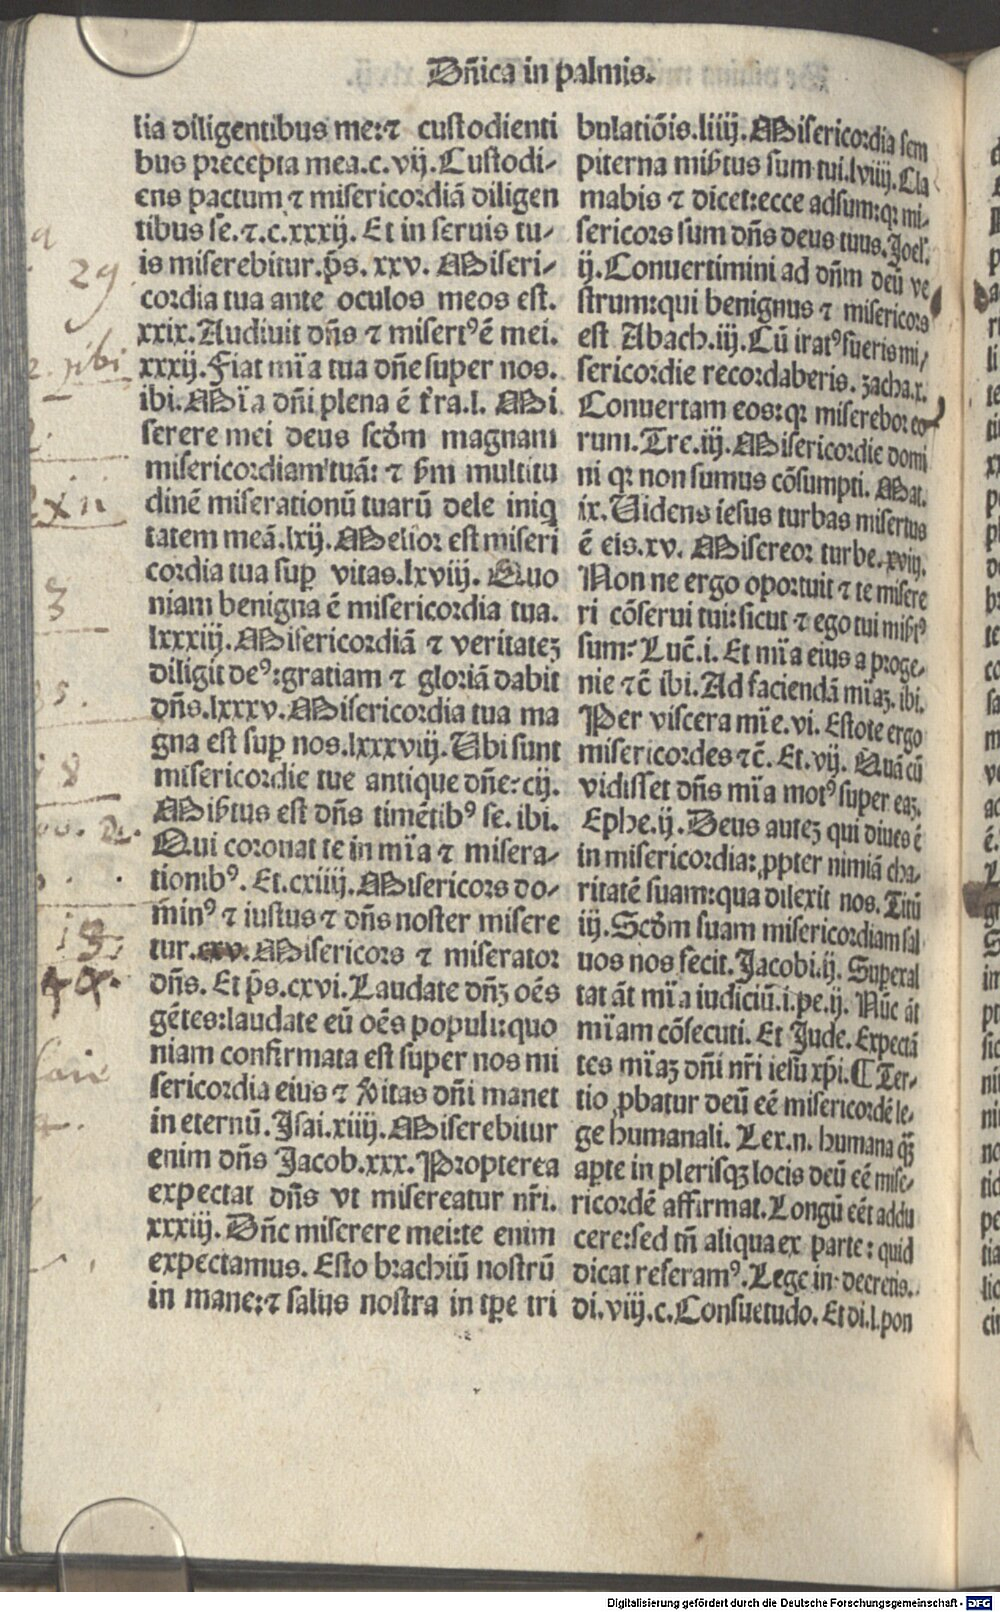 Dñica in palmis.
lia diligentibus me:⁊ custodienti
bus precepta mea.c.vij.Custodi-
ens pactum ⁊ misericordiã diligen
tibus se.⁊.c.xxxij. Et in seruis tu-
is miserebitur.p̃s. xxv. Miseri-
cordia tua ante oculos meos est.
xxix.Audiuit dñs ⁊ misertꝰ ẽ mei.
xxxij.Fiat mĩa tua dñe super nos.
ibi.Mĩa dñi plena ẽ t̃ra.l. Mi
serere mei deus scd̃m magnam
misericordiam tuã: ⁊ s̃m multitu
dinẽ miserationũ tuarũ dele iniq
tatem meã.lxij.Melior est miseri
cordia tua suꝑ vitas.lxviij. Quo
niam benigna ẽ misericordia tua.
lxxxiij.Misericordiã ⁊ veritateꝫ
diligit deꝰ:gratiam ⁊ gloriã dabit
dñs.lxxxv.Misericordia tua ma
gna est suꝑ nos.lxxxviij.Ubi sunt
misericordie tue antique dñe:cij.
Misẽtus est dñs timẽtibꝰ se. ibi.
Qui coronat te in mĩa ⁊ misera-
tionibꝰ. Et.cxiiij.Misericors do-
minꝰ ⁊ iustus ⁊ dñs noster misere
tur.cxv.Misericors ⁊ miserator
dñs. Et p̃s.cxvi.Laudate dñꝫ oẽs
gẽtes:laudate eũ oẽs populi:quo
niam confirmata est super nos mi
sericordia eius ⁊ ꝟitas dñi manet
in eternũ.Isai.xiiij.Miserebitur
enim dñs Jacob.xxx.Propterea
expectat dñs vt misereatur nr̃i.
xxxiij.Dñe miserere mei:te enim
expectamus. Esto brachiũ nostrũ
in mane:⁊ salus nostra in tꝑe tri
bulatiõis.liiij.Misericordia sem
piterna misẽtus sum tui.lviiij.Cla
mabis ⁊ dicet:ecce adsum:qꝛ mi-
sericors sum dñs deus tuus.Joel.
ij.Conuertimini ad dñm deũ ve
strum:qui benignus ⁊ misericors
est Abach.iij.Cũ iratꝰ fueris mi-
sericordie recordaberis. zacha.x.
Conuertam eos:qꝛ miserebor eo
rum.Tre.iij.Misericordie domi
ni qꝛ non sumus cõsumpti. Mat.
ix.Uidens iesus turbas misertus
ẽ eis.xv. Misereor turbe.xviij.
Non ne ergo oportuit ⁊ te misere
ri cõserui tui:sicut ⁊ ego tui mis̃tꝰ
sum: Luc̃.i. Et mĩa eius a proge-
nie ⁊c̃ ibi.Ad faciendã mĩaꝫ.ibi.
Per viscera mĩe.vi. Estote ergo
misericordes ⁊c̃. Et.vij. Quã cũ
vidisset dñs mĩa motꝰ super eaꝫ.
Ephe.ij.Deus auteꝫ qui diues ẽ
in misericordia:ꝓpter nimiã cha-
ritatẽ suam:qua dilexit nos. Titũ
iij.Scd̃m suam misericordiam sal
uos nos fecit.Jacobi.ij. Superal
tat ãt mĩa iudiciũ.i.pe.ij. Nũc ãt
mĩam cõsecuti. Et Jude. Expectã
tes mĩaꝫ dñi nr̃i iesu xp̃i.¶ Ter-
tio ꝓbatur deũ eẽ misericordẽ le-
ge humanali. Lex.n. humana ꝙ̃
aꝑte in plerisqꝫ locis deũ eẽ mise-
ricordẽ affirmat.Longũ eẽt addu
cere:sed tñ aliqua ex parte: quid
dicat referamꝰ.Lege in decretis.
di.viij.c.Consuetudo. Et di.l.pon
29
ibi
xii
3
5.
8
18
Digitalisierung gefördert durch die Deutsche Forschungsgemeinschaft - DFG